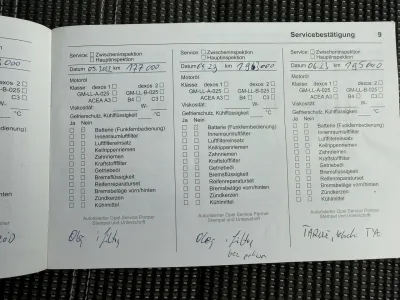 Servicebestätigung 9
Service: Zwischeninspektion
Hauptinspektion
Datum 03.2022 km 177 000
Motoröl
Klasse: dexos 1 dexos 2
GM-LL-A-025 GM-LL-B-025
ACEA A3 B4 C3
Viskosität: W-
Gefrierschutz, Kühlflüssigkeit °C
Ja Nein
Batterie (Funkfernbedienung)
Innenraumluftfilter
Luftfiltereinsatz
Keilrippenriemen
Zahnriemen
Kraftstofffilter
Getriebeöl
Bremsflüssigkeit
Reifenreparaturset
Bremsbeläge vorn/hinten
Zündkerzen
Kühlmittel
Autorisierter Opel Service Partner
Stempel und Unterschrift
Service: Zwischeninspektion
Hauptinspektion
Datum km
Motoröl
Klasse: dexos 1 dexos 2
GM-LL-A-025 GM-LL-B-025
ACEA A3 B4 C3
Viskosität: W-
Gefrierschutz, Kühlflüssigkeit °C
Ja Nein
Batterie (Funkfernbedienung)
Innenraumluftfilter
Luftfiltereinsatz
Keilrippenriemen
Zahnriemen
Kraftstofffilter
Getriebeöl
Bremsflüssigkeit
Reifenreparaturset
Bremsbeläge vorn/hinten
Zündkerzen
Kühlmittel
Autorisierter Opel Service Partner
Stempel und Unterschrift
Olej i filtry
Service: Zwischeninspektion
Hauptinspektion
Datum 06.23 km 195 000
Motoröl
Klasse: dexos 1 dexos 2
GM-LL-A-025 GM-LL-B-025
ACEA A3 B4 C3
Viskosität: W-
Gefrierschutz, Kühlflüssigkeit °C
Ja Nein
Batterie (Funkfernbedienung)
Innenraumluftfilter
Luftfiltereinsatz
Keilrippenriemen
Zahnriemen
Kraftstofffilter
Getriebeöl
Bremsflüssigkeit
Reifenreparaturset
Bremsbeläge vorn/hinten
Zündkerzen
Kühlmittel
Autorisierter Opel Service Partner
Stempel und Unterschrift